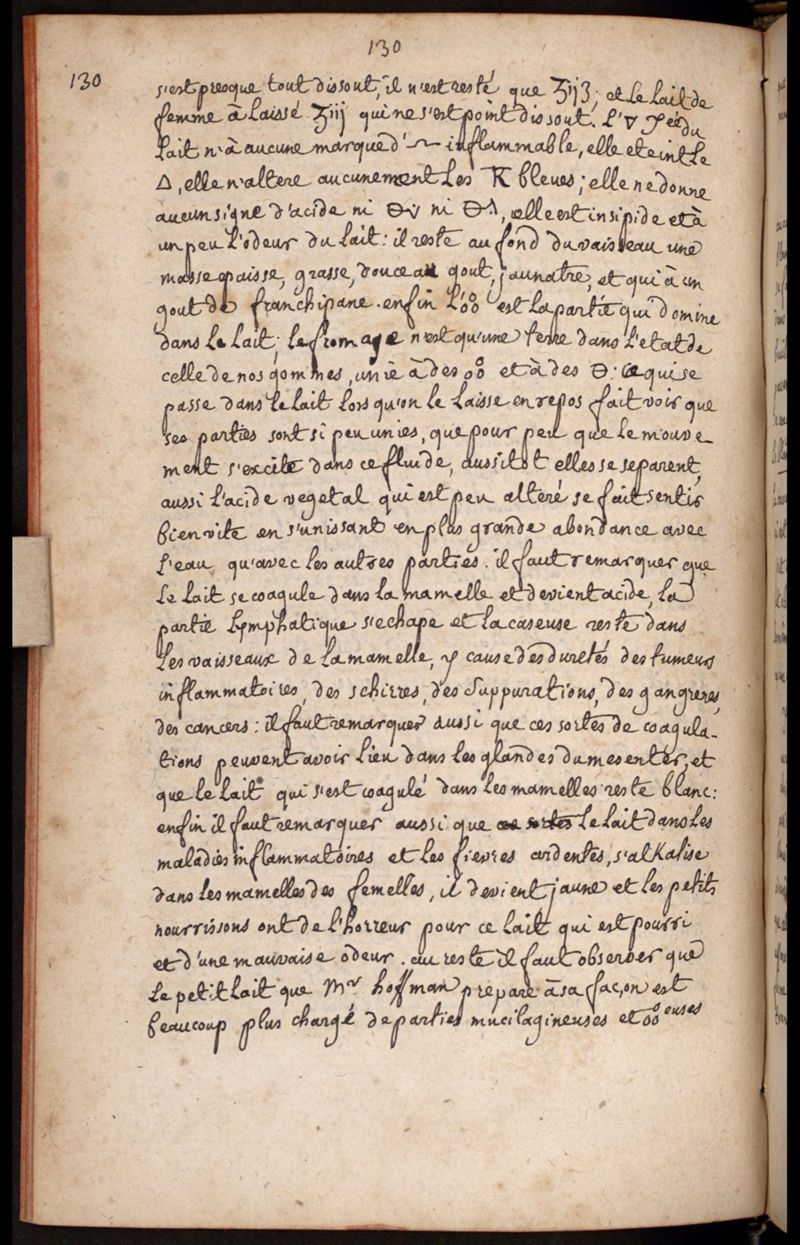 130
130
s'est presque tout dissout, il n'est resté que ʒijʒ; et le lait de
femme à laissé ʒiij qui ne s'est point dissout. L'▽ du
lait n'à aucune marque d' inflammable, elle eteint le
△, elle n'altere aucunement les bleues; elle ne donne
aucun signe d'acide ni ni, elle est insipide et à
un peu l'odeur du lait: il reste au fond du vaisseau une
masse epaisse, grasse, douce au gout, jaunatre, et qui à un
gout de franchipane. enfin l'o°o est la partie qui domine
dans le lait; le fromage n'est qu'une terre dans l'etat de
celle de nos gommes, unie à des o°o et à des ꝋ: ce qui se
passe dans le lait lors qu'on le laisse en repos fait voir que
ses parties sont si peu unies, que pour peu que le mouve
ment s'excite dans ce fluide, aussitot elles se separent,
aussi l'acide vegetal qui est peu alteré se fait sentir
bien vite en s'unissant en plus grande abondance avec
l'eau qu'avec les autres parties. il faut remarquer que
le lait se coagule dans la mamelle et devient acide, la
partie lymphatique s'echape et la caseuse reste dans
les vaisseaux de la mamelle, y cause des duretés des tumeurs
inflammatoires, des schirres, des suppurations, des gangrenes,
des cancers: il faut remarquer aussi que ces sortes de coagula-
tions peuvent avoir lieu dans les glandes du mesenter, et
que le lait qui s'est coagulé dans les mamelles reste blanc:
enfin il faut remarquer aussi que le lait dans les
maladies inflammatoires et les fievres ardentes, s'alKalise
dans les mamelles des femelles, il devient jaune et les petits
nourrissons ont de l'horreur pour ce lait qui est pourri
et d'une mauvaise odeur. au reste il faut observer que
le petit lait que Mr hoffman prepare à sa façon est
beaucoup plus chargé de parties mucilagineuses et o°o euses